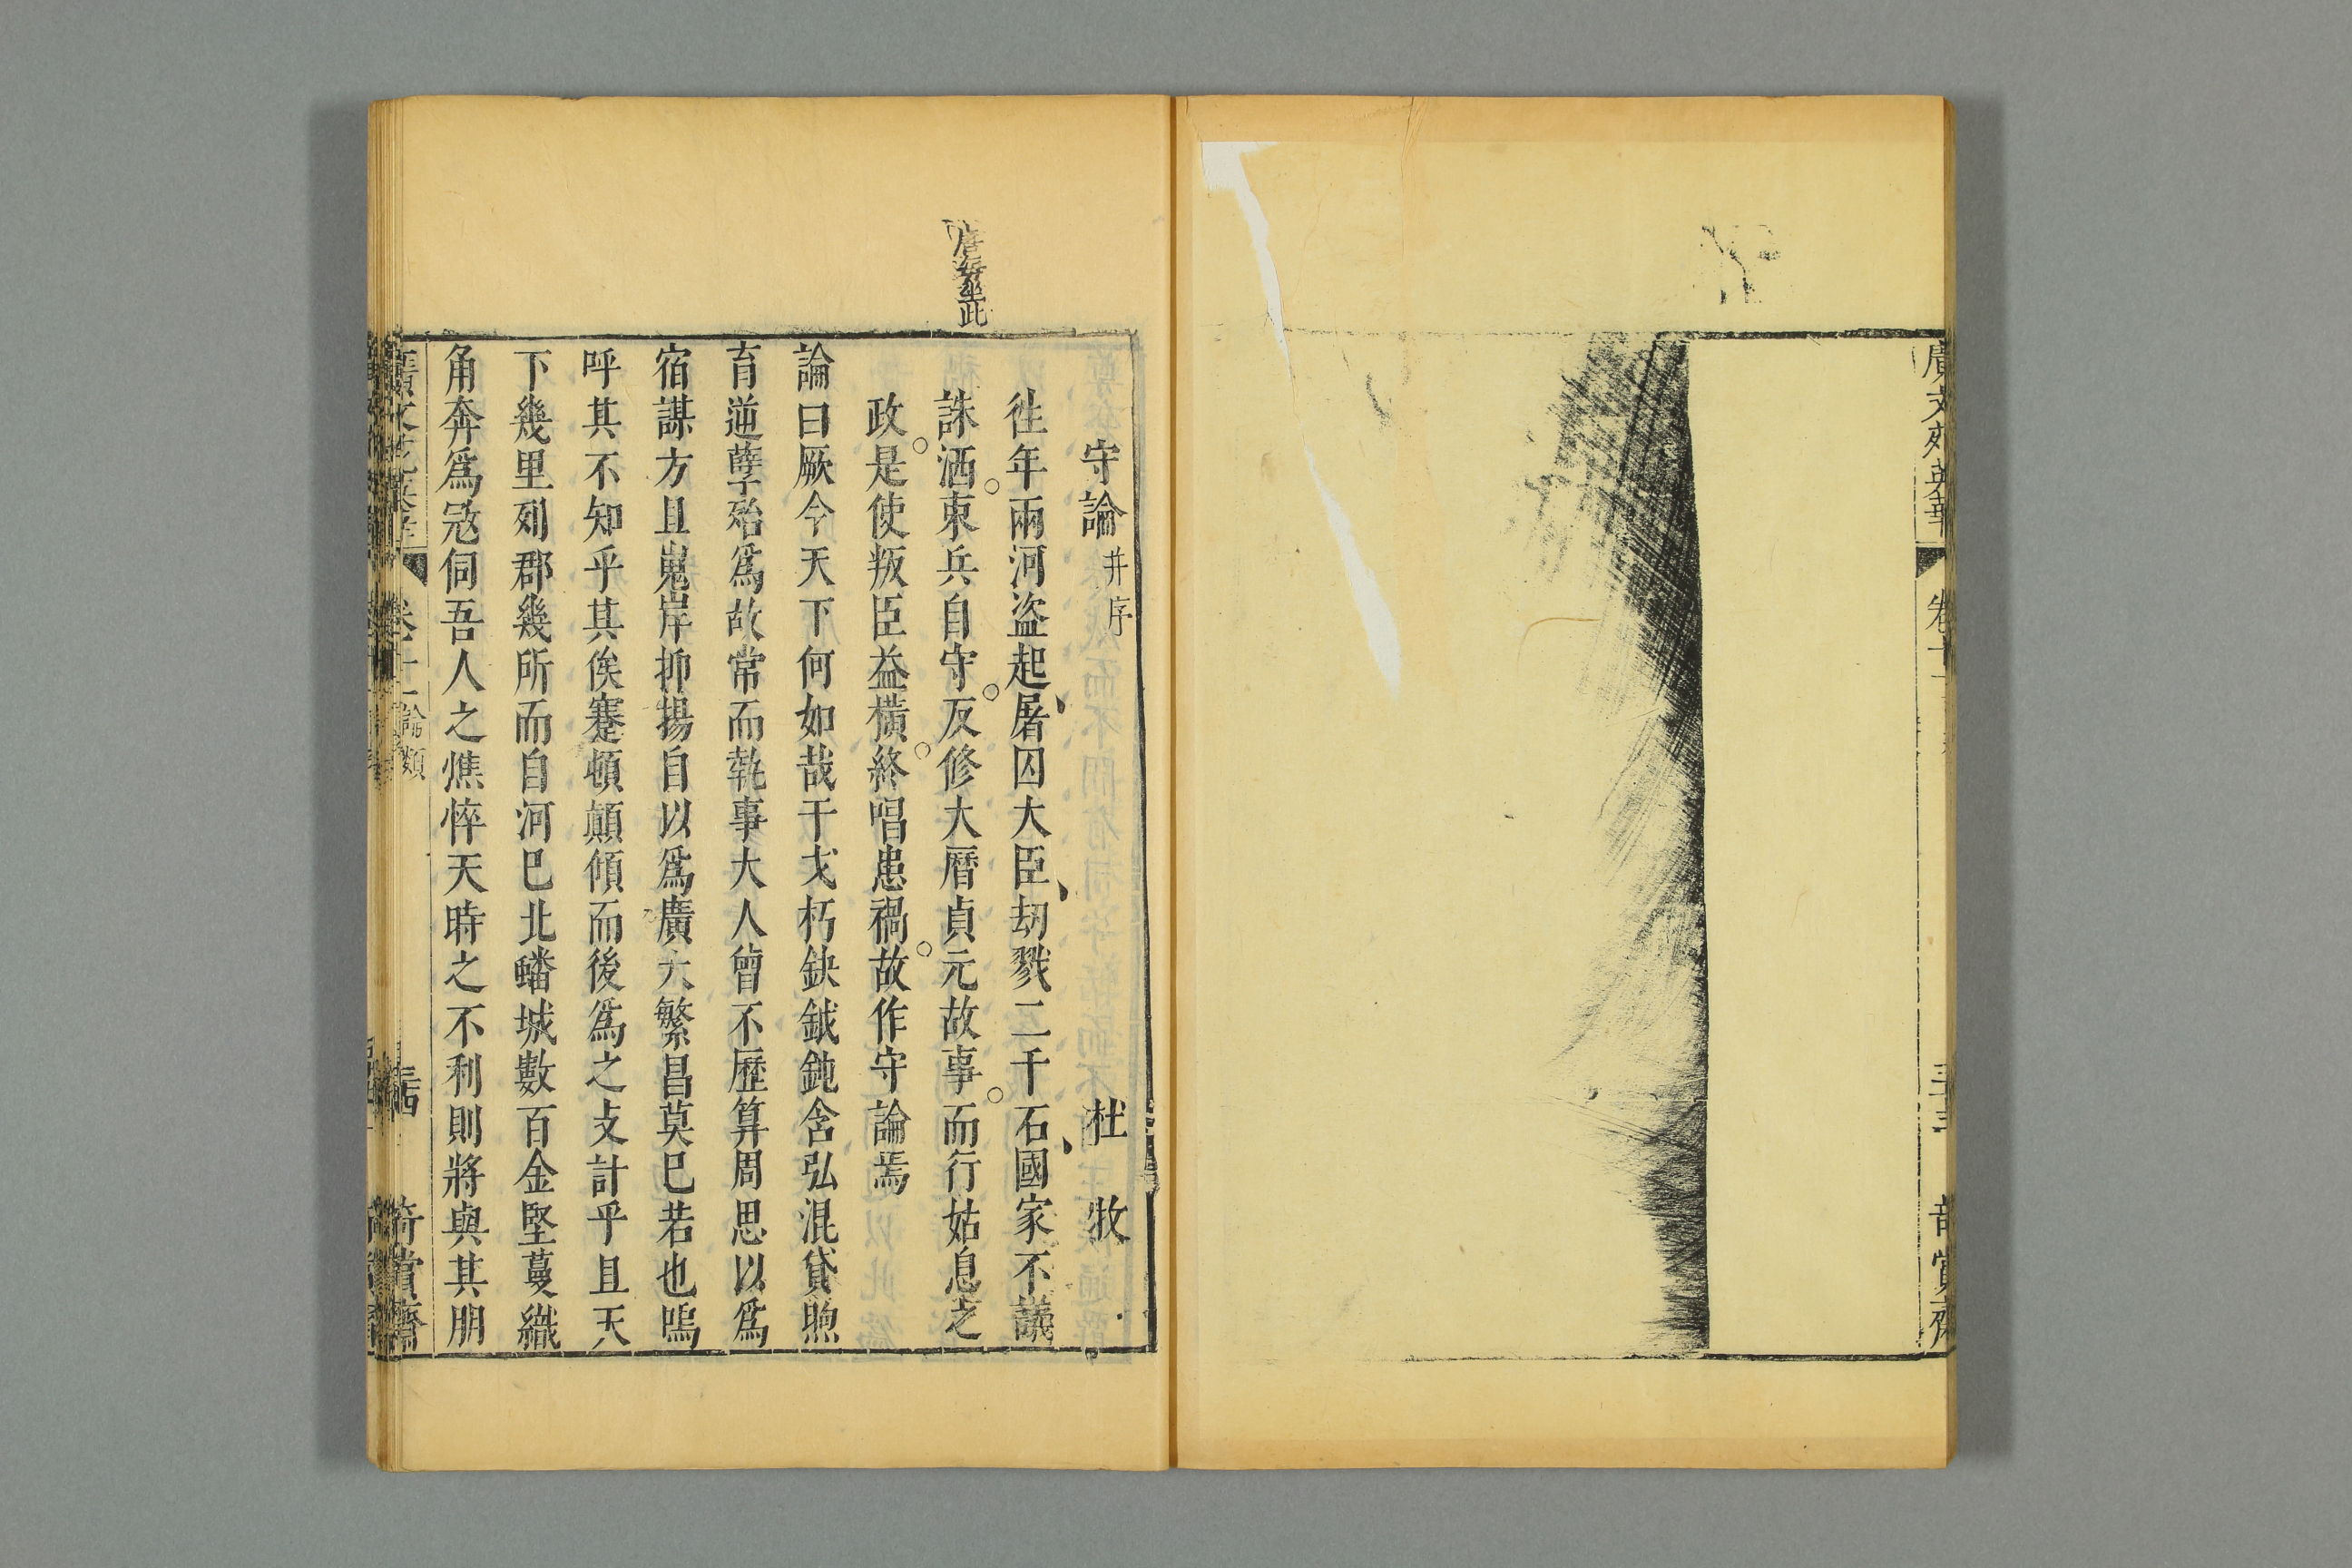 廣文苑英華
卷十
三三
賞齋
守論并序
杜牧
往年兩河盜起屠囚大臣劫戮二千石國家不議
誅洒束兵自守反修大曆貞元故事而行姑息之
政是使叛臣益橫終唱患禍故作守論焉
論曰厥今天下何如哉干戈朽鈇鉞鈍含弘混貸煦
育逆孽殆爲故常而執事大人曾不歷算周思以爲
宿謀方且嵬岸抑揚自以爲廣大繁昌莫巳若也嗚
呼其不知乎其俟蹇頓顛傾而後爲之支計乎且天
下幾里列郡幾所而自河巳北蟠城數百金堅蔓織
角奔爲冦伺吾人之憔悴天時之不利則將與其朋
論類